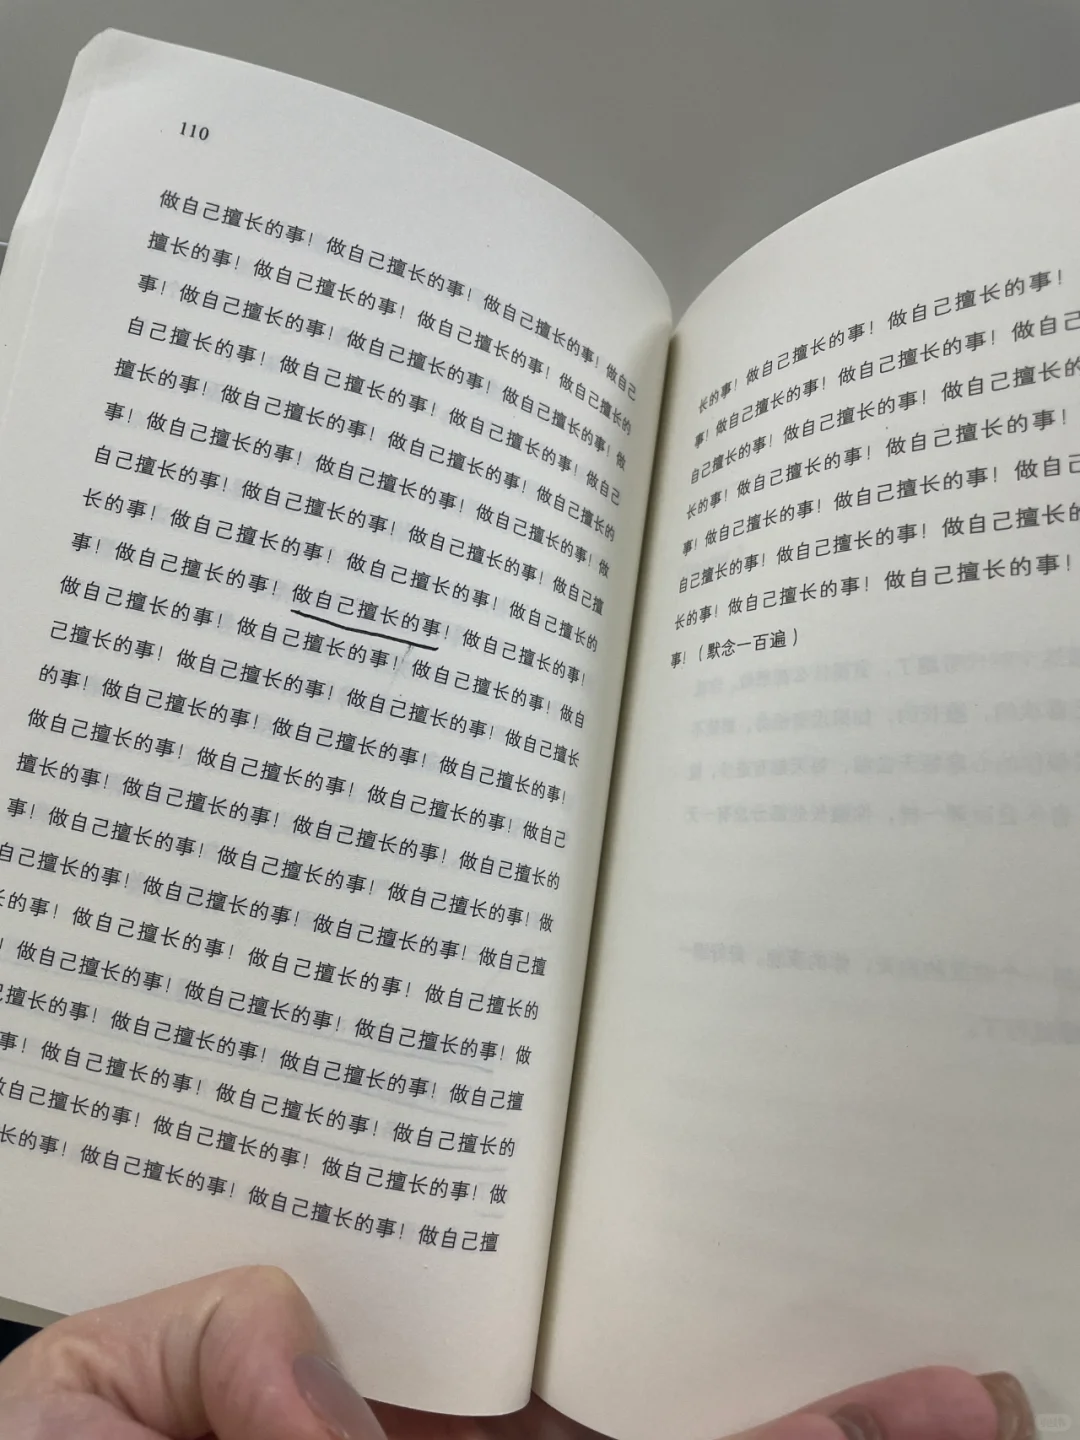 110
做自己擅长的事！做自己擅长的事！做自己擅长的事！做自己
擅长的事！做自己擅长的事！做自己擅长的事！做自己擅长的
事！做自己擅长的事！做自己擅长的事！做自己擅长的事！做
自己擅长的事！做自己擅长的事！做自己擅长的事！做自己
擅长的事！做自己擅长的事！做自己擅长的事！做自己擅长的
事！做自己擅长的事！做自己擅长的事！做自己擅长的事！做
自己擅长的事！做自己擅长的事！做自己擅长的事！做自己擅
长的事！做自己擅长的事！做自己擅长的事！做自己擅长的
事！做自己擅长的事！做自己擅长的事！做自己擅长的事！
做自己擅长的事！做自己擅长的事！做自己擅长的事！做自
己擅长的事！做自己擅长的事！做自己擅长的事！做自己擅长
的事！做自己擅长的事！做自己擅长的事！做自己擅长的事！
做自己擅长的事！做自己擅长的事！做自己擅长的事！做自己
擅长的事！做自己擅长的事！做自己擅长的事！做自己擅长的
事！做自己擅长的事！做自己擅长的事！做自己擅长的事！做
自己擅长的事！做自己擅长的事！做自己擅长的事！做自己擅
长的事！做自己擅长的事！做自己擅长的事！做自己擅长的
！做自己擅长的事！做自己擅长的事！做自己擅长的事！做
己擅长的事！做自己擅长的事！做自己擅长的事！做自己擅
事！做自己擅长的事！做自己擅长的事！做自己擅长的
做自己擅长的事！做自己擅长的事！做自己擅长的事！做
长的事！做自己擅长的事！做自己擅长的事！做自己擅
长的事！做自己擅长的事！做自己擅长的事！
事！做自己擅长的事！做自己擅长的事！做自己
自己擅长的事！做自己擅长的事！做自己擅长的
长的事！做自己擅长的事！做自己擅长的事！
事！做自己擅长的事！做自己擅长的事！做自己
自己擅长的事！做自己擅长的事！做自己擅长的
长的事！做自己擅长的事！做自己擅长的事！
事！（默念一百遍）